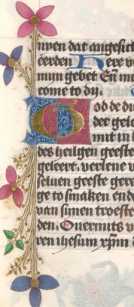 uwen dat angesich
eerden Here v
mijn gebet En mi
come to dy.
God de d
der gelo
mit in
des heilgen geeste
geleert. verlene v
seluen geeste gere
ge to smaken ende
van sinen troeste
den. Ouermits v
ren ihesum xpm